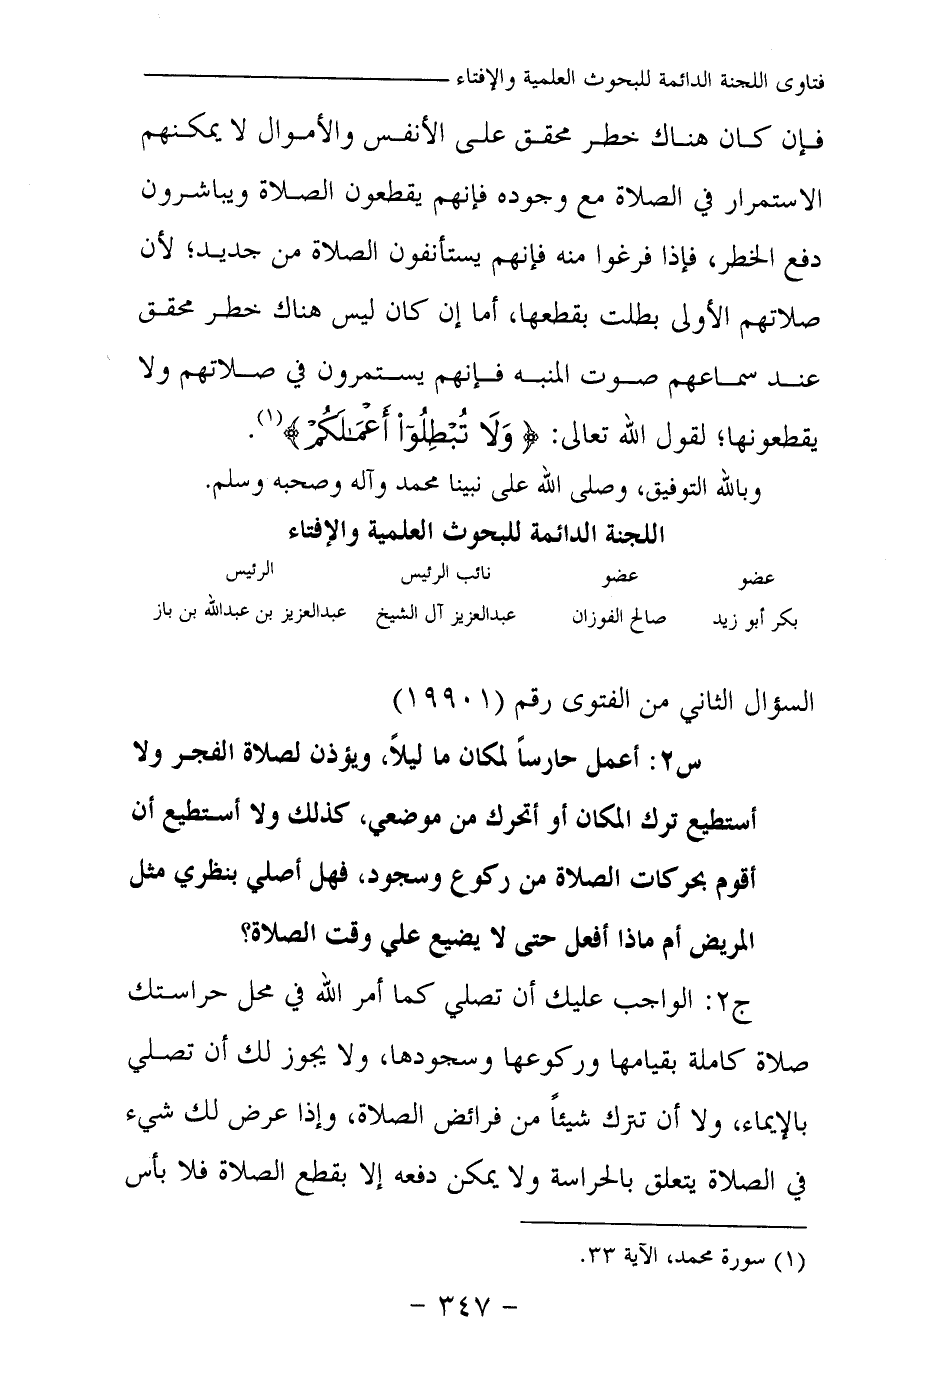 فتاوى اللجنة الدائمة للبحوث العلمية والإفتاء
فإن كان هناك خطر محقق على الأنفس والأموال لا يمكنهم
الاستمرار في الصلاة مع وجوده فإنهم يقطعون الصلاة ويباشرون
دفع الخطر، فإذا فرغوا منه فإنهم يستأنفون الصلاة من جديد؛ لأن
صلاتهم الأولى بطلت بقطعها، أما إن كان ليس هناك خطر محقق
عند سماعهم صوت المنبه فإنهم يستمرون في صلاتهم ولا
يقطعونها؛ لقول الله تعالى: ﴿ وَلَا تُبْطِلُوٓا۟ أَعْمَـٰلَكُمْ ﴾(١).
وبالله التوفيق، وصلى الله على نبينا محمد وآله وصحبه وسلم.
اللجنة الدائمة للبحوث العلمية والإفتاء
عضو عضو نائب الرئيس الرئيس
بكر أبو زيد صالح الفوزان عبدالعزيز آل الشيخ عبدالعزيز بن عبدالله بن باز
السؤال الثاني من الفتوى رقم (١٩٩٠١)
س٢: أعمل حارساً لمكان ما ليلاً، ويؤذن لصلاة الفجر ولا
أستطيع ترك المكان أو أتحرك من موضعي، كذلك ولا أستطيع أن
أقوم بحركات الصلاة من ركوع وسجود، فهل أصلي بنظري مثل
المريض أم ماذا أفعل حتى لا يضيع علي وقت الصلاة؟
ج٢: الواجب عليك أن تصلي كما أمر الله في محل حراستك
صلاة كاملة بقيامها وركوعها وسجودها، ولا يجوز لك أن تصلي
بالإيماء، ولا أن تترك شيئاً من فرائض الصلاة، وإذا عرض لك شيء
في الصلاة يتعلق بالحراسة ولا يمكن دفعه إلا بقطع الصلاة فلا بأس
(١) سورة محمد، الآية ٣٣.
- ٣٤٧ -